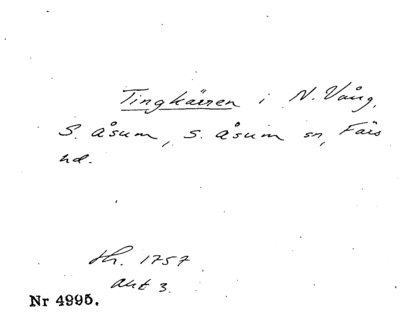 Tingkärren i N. Vång,
S. Åsum, S. Åsum sn, Färs
hd.
sk. 1757
akt 3.
Nr 4995.